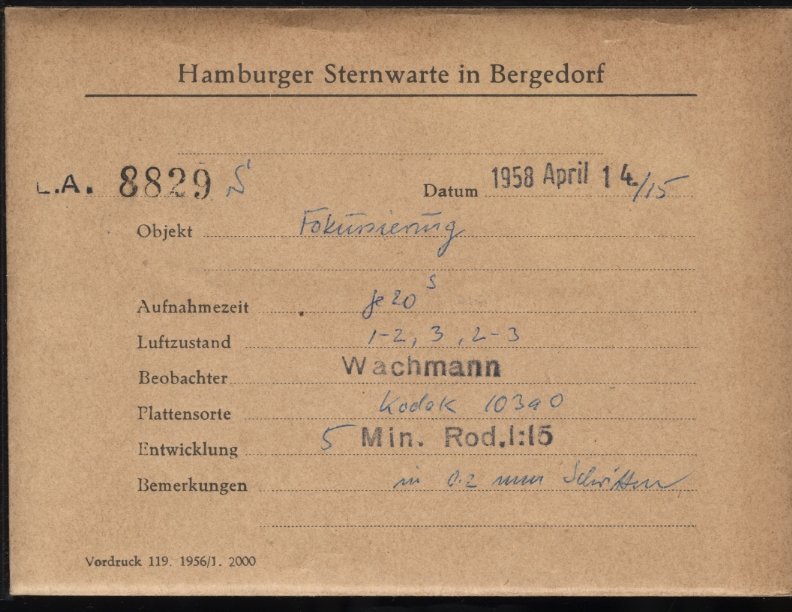 Hamburger Sternwarte in Bergedorf
L.A. 8829 S Datum 1958 April 14./15
Objekt Fokussierung
Aufnahmezeit je 20 s
Luftzustand 1-2, 3, 2-3
Beobachter Wachmann
Plattensorte Kodak 103a0
Entwicklung 5 Min. Rod.1:15
Bemerkungen in 0.2 mm Schritten
Vordruck 119. 1956/1. 2000